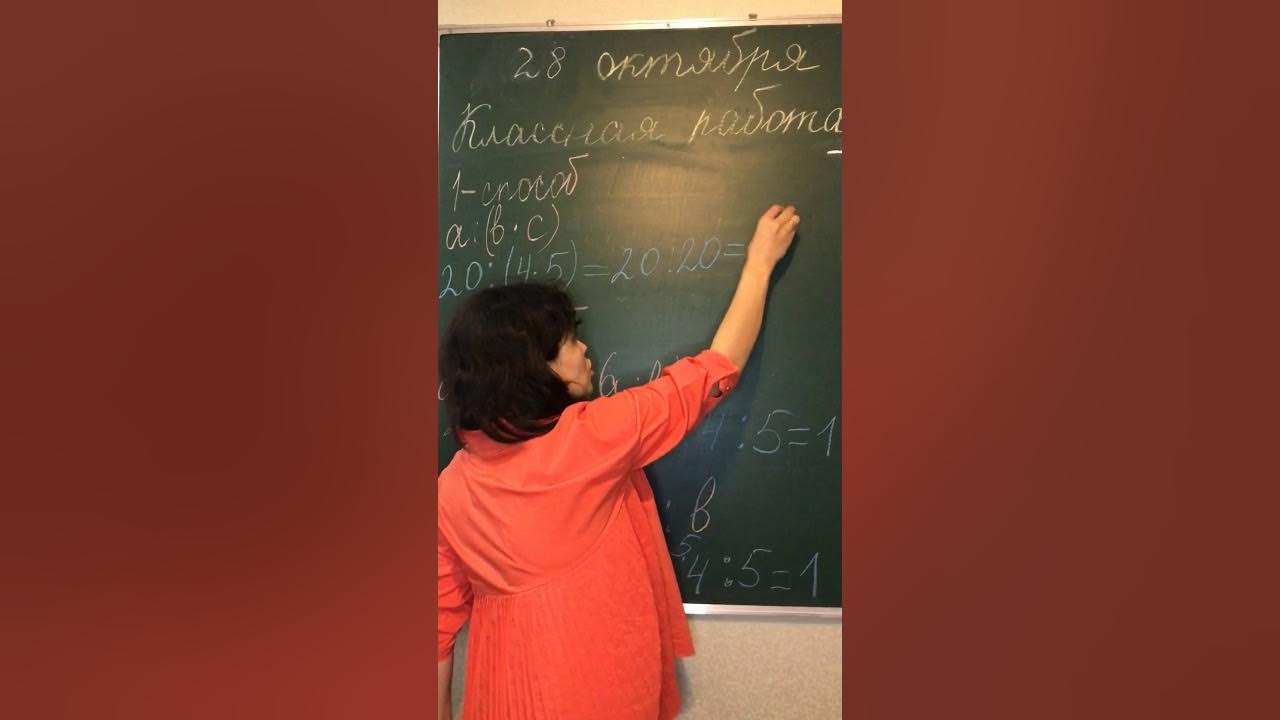 28 октября
Классная работа
1-способ
а:(в·с)
20:(4·5)=20:20=
4:5=1
: в
5
4:5=1